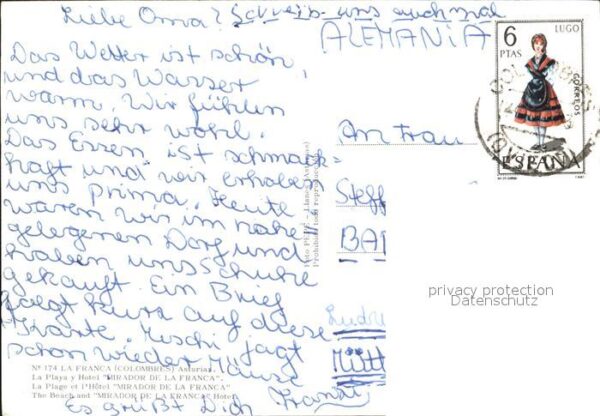 Liebe Oma! Schreib uns auch mal
Das Wetter ist schön
und das Wasser
warm. Wir fühlen
uns sehr wohl.
Das Essen ist schmack=
haft und wir erholen
uns prima. Heute
waren wir im nahe
gelegenen Dorf und
haben uns Schuhe
gekauft. Ein Brief
folgt kurz auf diese
Karte. Muschi jagt
schon wieder Mäuse
Es grüßt Dich
ALEMANIA
An Frau
Steff
BAI
6
PTAS
LUGO
CORREOS
ESPAÑA
privacy protection
Datenschutz
Prohibida toda reproducción
Nº 174 LA FRANCA (COLOMBRES) Asturias.
La Playa y Hotel "MIRADOR DE LA FRANCA".
La Plage et l'Hôtel "MIRADOR DE LA FRANCA"
The Beach and "MIRADOR DE LA FRANCA" Hotel